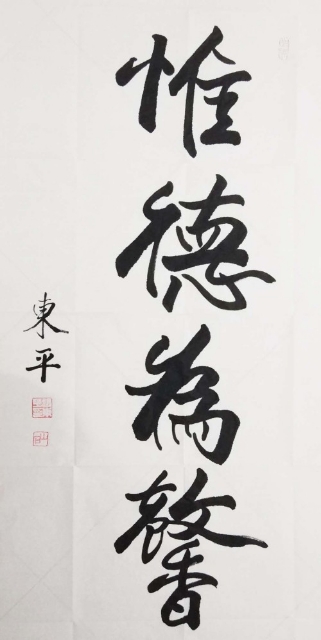 惟德為馨
東平